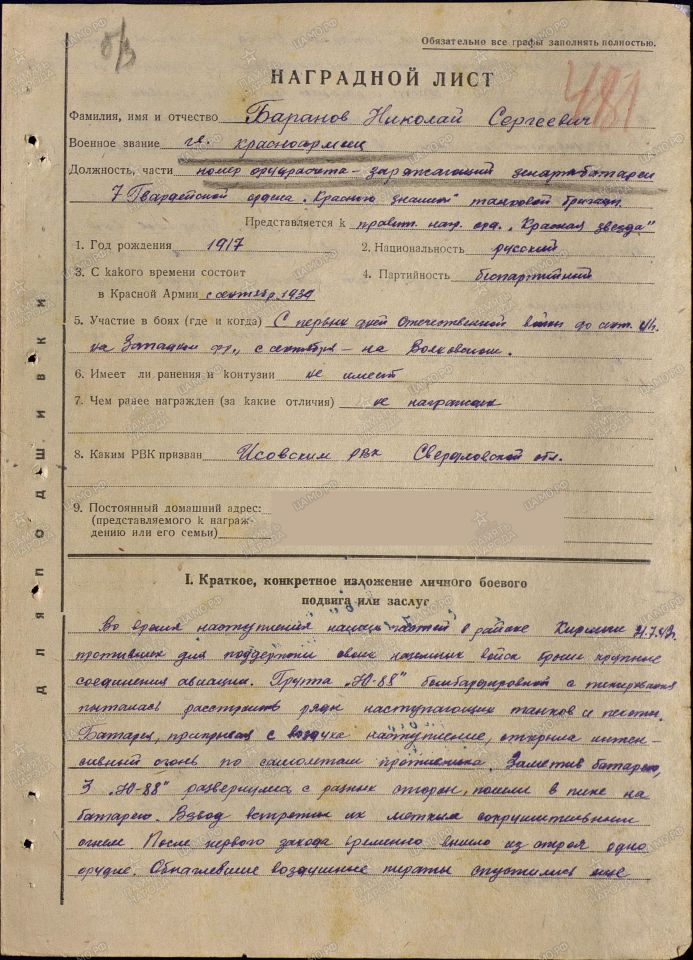 Обязательно все графы заполнять полностью.
б/з
481
НАГРАДНОЙ ЛИСТ
Фамилия, имя и отчество Баранов Николай Сергеевич
Военное звание гв. красноармеец
Должность, части номер орудрасчета – заряжающий зенартбатареи
7 Гвардейской ордена „Красного знамени" танковой бригады.
Представляется к правит. нагр. орд. „Красная звезда"
1. Год рождения 1917 2. Национальность русский
3. С какого времени состоит 4. Партийность беспартийный
в Красной Армии с сентябр. 1939
5. Участие в боях (где и когда) С первых дней Отечественной войны до сент. 41г.
на Западном фр., с сентября – на Волховском.
6. Имеет ли ранения и контузии не имеет
7. Чем ранее награжден (за какие отличия) не награжден
8. Каким РВК призван Исовским РВК Свердловской обл.
9. Постоянный домашний адрес:
(представляемого к награж-
дению или его семьи)
I. Краткое, конкретное изложение личного боевого
подвига или заслуг
Во время наступления наших частей в районе Кириши
противник для поддержки своих наземных войск бросил крупные
соединения авиации. Группа „Ю-88" бомбардировкой с пикирования
пыталась расстроить ряды наступающих танков и пехоты.
Батарея, прикрывая с воздуха наступление, открыла интен-
сивный огонь по самолетам противника. Заметив батарею,
3 „Ю-88" развернулись с разных сторон, пошли в пике на
батарею. Взвод встретил их метким сокрушительным
огнем. После первого захода временно вышло из строя одно
орудие. Обнаглевшие воздушные пираты спустились еще
ДЛЯ ПОДШИВКИ
ПАМЯТЬ НАРОДА
ЦАМО.РФ